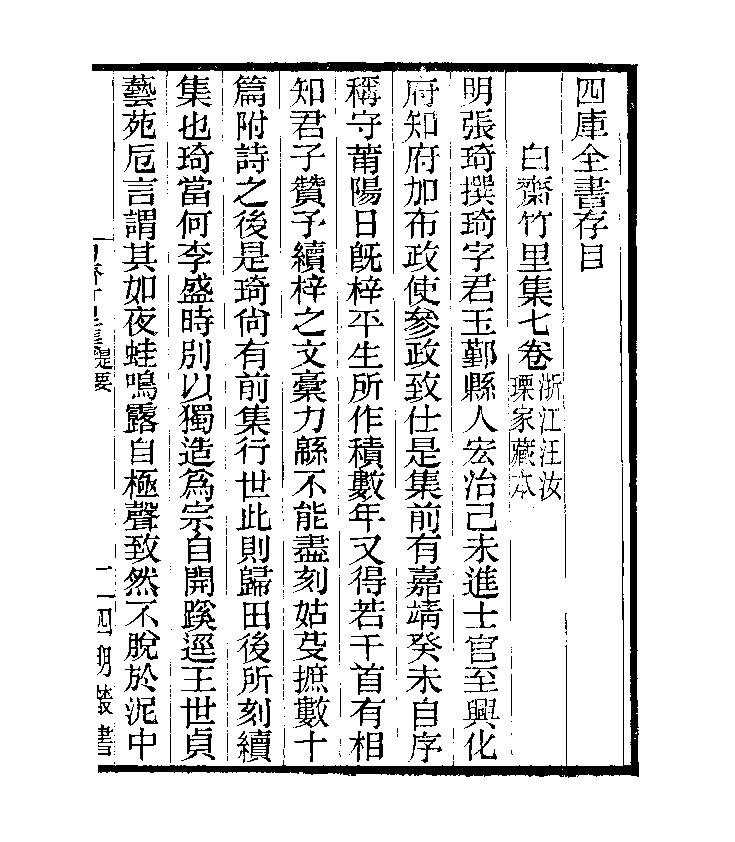 四庫全書存目
白齋竹里集七卷浙江汪汝瑮家藏本
明張琦撰琦字君玉鄞縣人宏治己未進士官至興化
府知府加布政使參政致仕是集前有嘉靖癸未自序
稱守莆陽日旣梓平生所作積數年又得若干首有相
知君子贊予續梓之文稾力緜不能盡刻姑芟摭數十
篇附詩之後是琦尙有前集行世此則歸田後所刻續
集也琦當何李盛時別以獨造爲宗自開蹊逕王世貞
藝苑卮言謂其如夜蛙鳴露自極聲致然不脫於泥中
提要
一
四明叢書